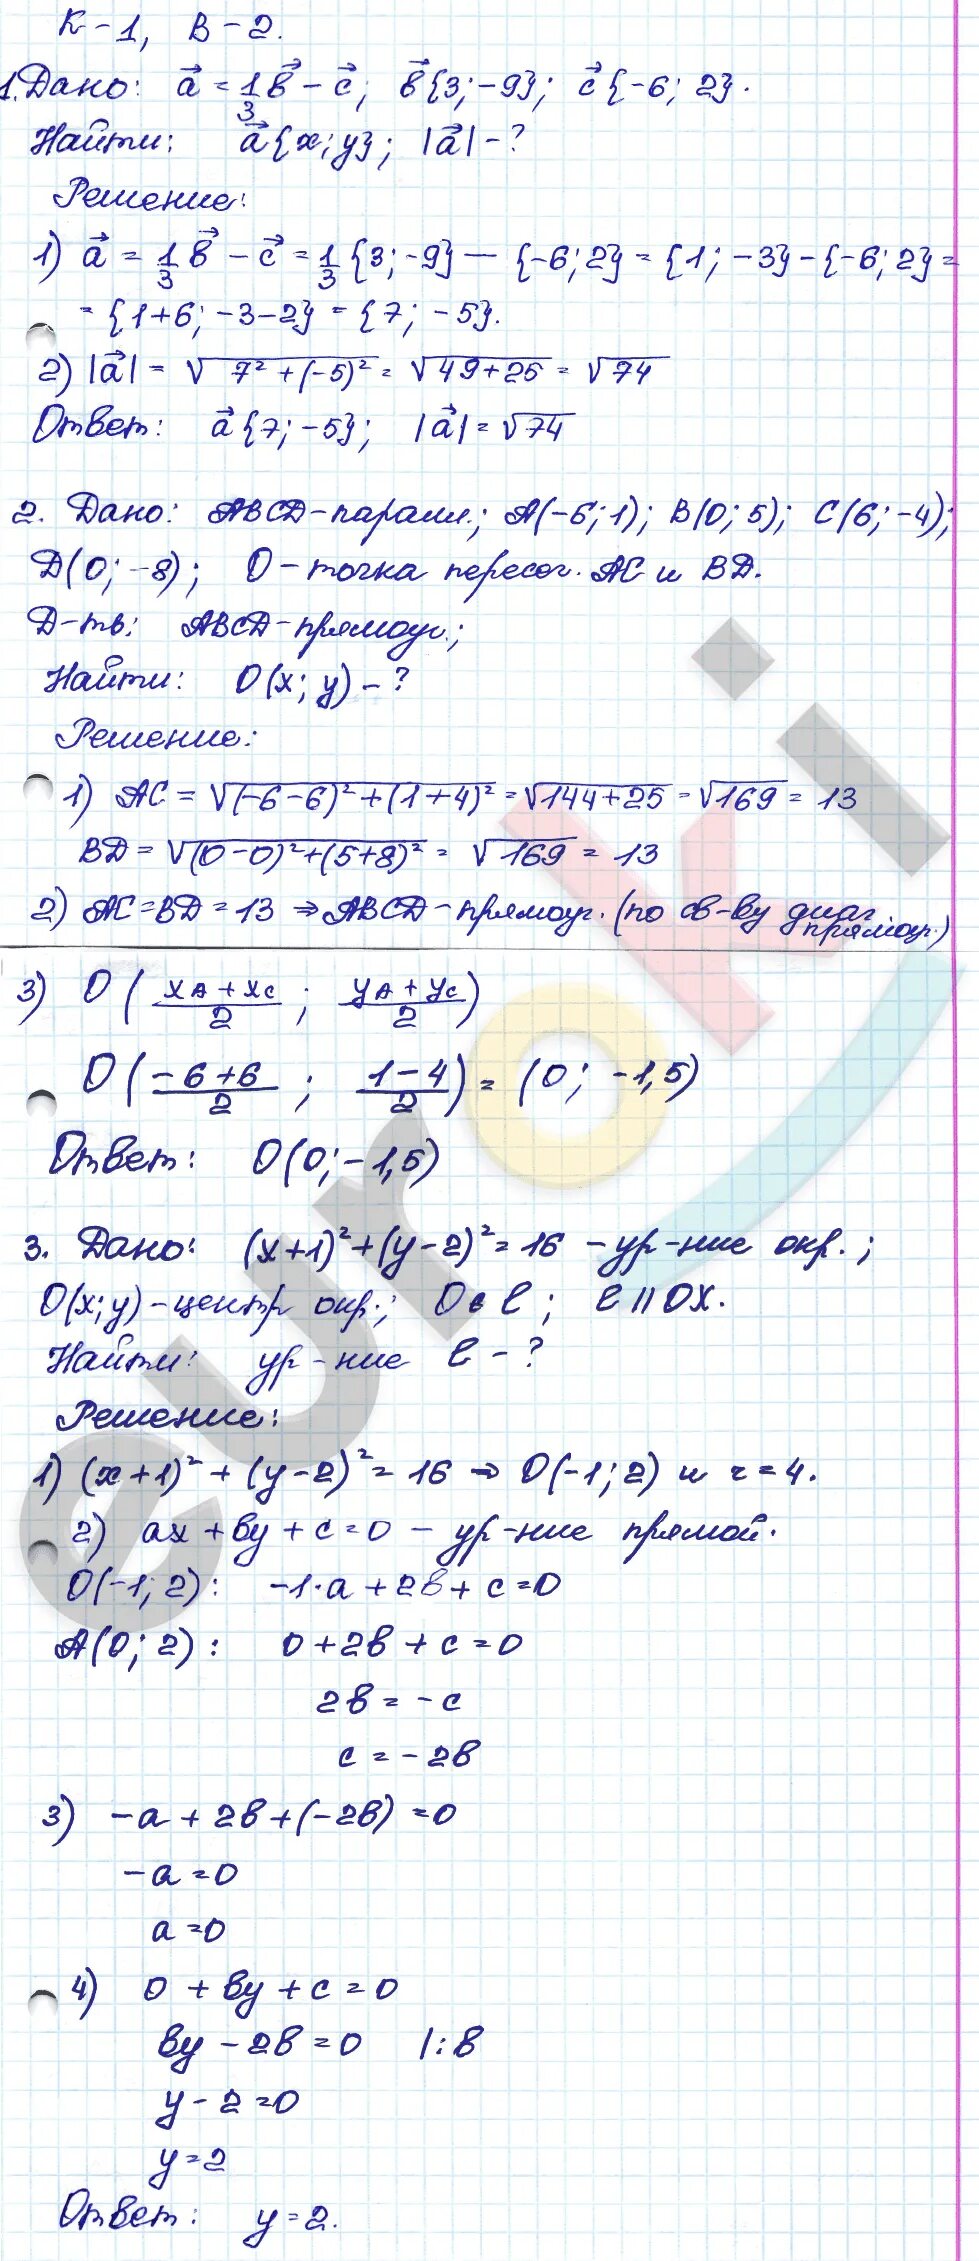 К-1, В-2.
1. Дано: a⃗ = 1/3 b⃗ - c⃗; b⃗{3; -9}; c⃗{-6; 2}.
Найти: a⃗{x; y}; |a⃗| - ?
Решение:
1) a⃗ = 1/3 b⃗ - c⃗ = 1/3 {3; -9} - {-6; 2} = {1; -3} - {-6; 2} =
= {1+6; -3-2} = {7; -5}.
2) |a⃗| = √(7² + (-5)²) = √(49+25) = √74
Ответ: a⃗{7; -5}; |a⃗| = √74
2. Дано: ABCD-паралл.; A(-6; 1); B(0; 5); C(6; -4);
D(0; -8); O-точка пересеч. AC и BD.
Д-ть: ABCD-прямоуг.;
Найти: O(x; y) - ?
Решение:
1) AC = √((-6-6)² + (1+4)²) = √(144+25) = √169 = 13
BD = √((0-0)² + (5+8)²) = √169 = 13
2) AC = BD = 13 ⇒ ABCD-прямоуг. (по св-ву диаг. прямоуг.)
3) O((xA + xC)/2; (yA + yC)/2)
O((-6+6)/2; (1-4)/2) = (0; -1,5)
Ответ: O(0; -1,5)
3. Дано: (x+1)² + (y-2)² = 16 - ур-ние окр.;
O(x; y) - центр окр.; O ∈ l; l || OX.
Найти: ур-ние l - ?
Решение:
1) (x+1)² + (y-2)² = 16 ⇒ O(-1; 2) и r = 4.
2) ax + by + c = 0 - ур-ние прямой.
O(-1; 2): -1·a + 2b + c = 0
A(0; 2): 0 + 2b + c = 0
2b = -c
c = -2b
3) -a + 2b + (-2b) = 0
-a = 0
a = 0
4) 0 + by + c = 0
by - 2b = 0 |: b
y - 2 = 0
y = 2
Ответ: y = 2.
euroki